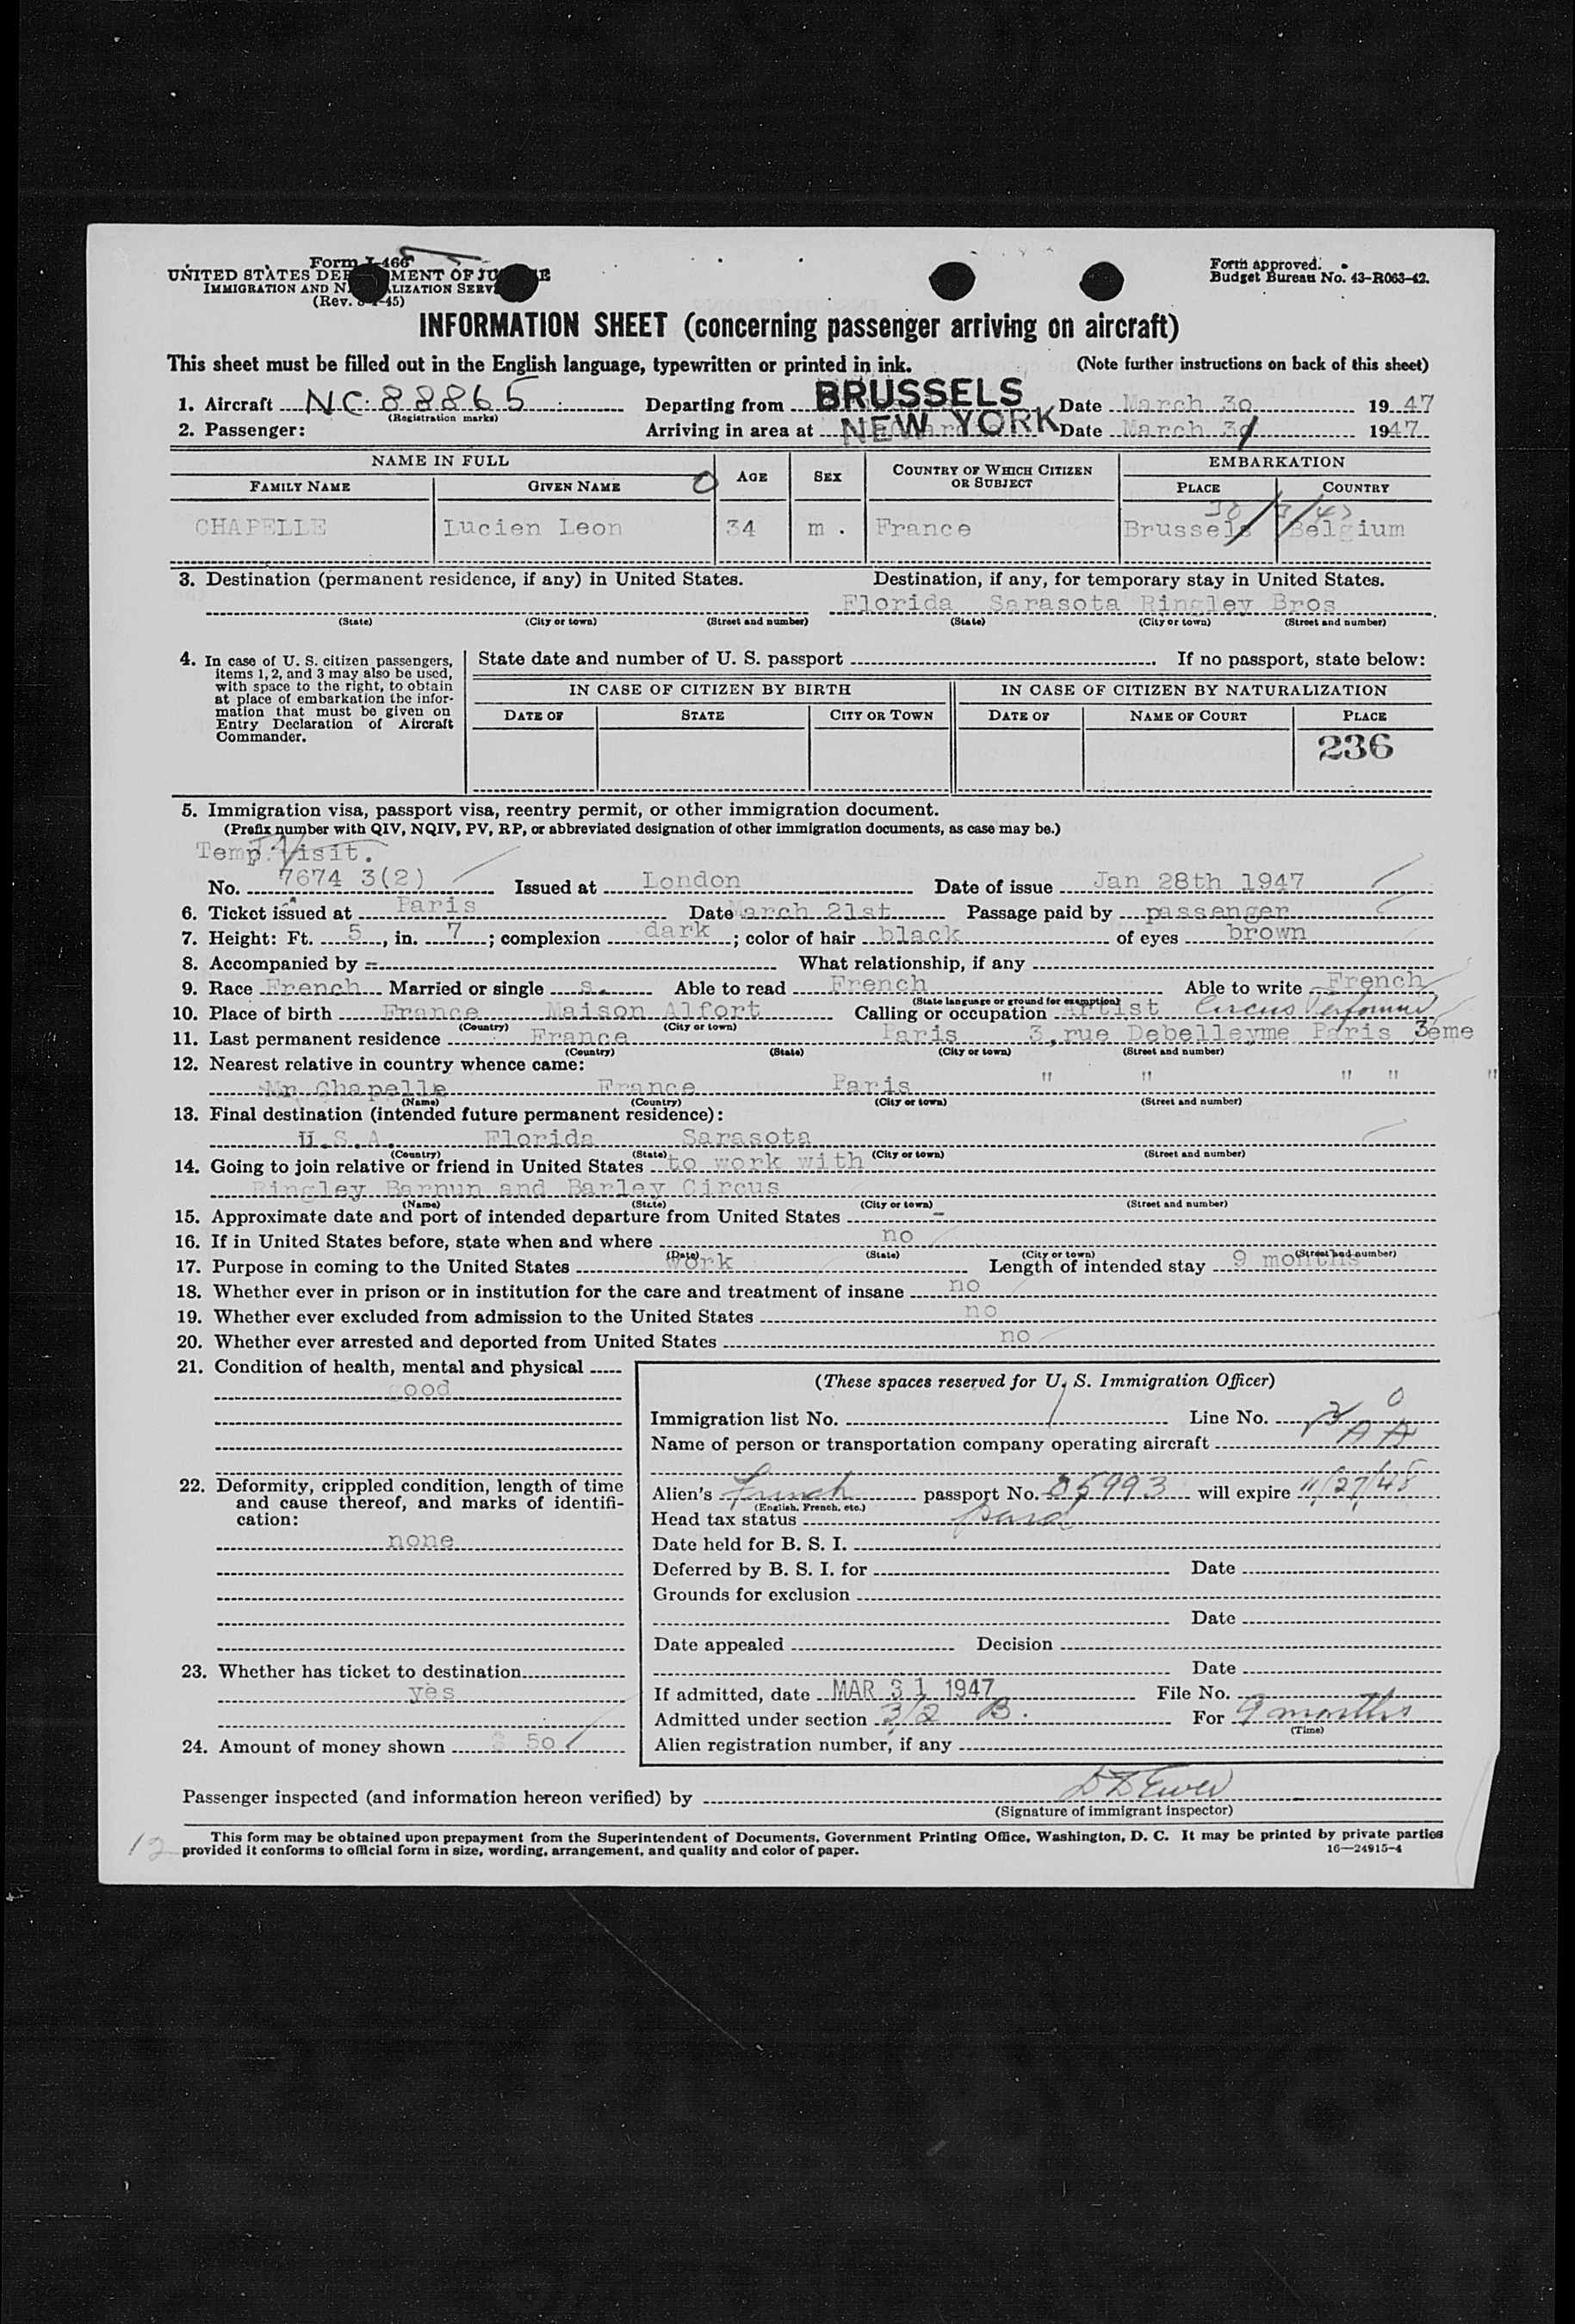 Form I-466
UNITED STATES DEPARTMENT OF JUSTICE
IMMIGRATION AND NATURALIZATION SERVICE
(Rev. 8-1-45)
Form approved.
Budget Bureau No. 43-R063-42.
INFORMATION SHEET (concerning passenger arriving on aircraft)
This sheet must be filled out in the English language, typewritten or printed in ink. (Note further instructions on back of this sheet)
1. Aircraft NC 88865 Departing from BRUSSELS Date March 30 1947
(Registration marks)
2. Passenger: Arriving in area at NEW YORK Date March 31 1947
NAME IN FULL AGE SEX COUNTRY OF WHICH CITIZEN OR SUBJECT EMBARKATION
FAMILY NAME GIVEN NAME PLACE COUNTRY
CHAPELLE Lucien Leon 34 m. France Brussels Belgium
3. Destination (permanent residence, if any) in United States. Destination, if any, for temporary stay in United States.
Florida Sarasota Ringley Bros
(State) (City or town) (Street and number) (State) (City or town) (Street and number)
4. In case of U. S. citizen passengers, items 1, 2, and 3 may also be used, with space to the right, to obtain at place of embarkation the information that must be given on Entry Declaration of Aircraft Commander.
State date and number of U. S. passport If no passport, state below:
IN CASE OF CITIZEN BY BIRTH IN CASE OF CITIZEN BY NATURALIZATION
DATE OF STATE CITY OR TOWN DATE OF NAME OF COURT PLACE
236
5. Immigration visa, passport visa, reentry permit, or other immigration document.
(Prefix number with QIV, NQIV, PV, RP, or abbreviated designation of other immigration documents, as case may be.)
Temp. Visit.
No. 7674 3(2) Issued at London Date of issue Jan 28th 1947
6. Ticket issued at Paris Date March 21st Passage paid by passenger
7. Height: Ft. 5, in. 7; complexion dark; color of hair black of eyes brown
8. Accompanied by = What relationship, if any
9. Race French Married or single s. Able to read French Able to write French
(State language or ground for exemption)
10. Place of birth France Maison Alfort Calling or occupation Artist Circus Performer
(Country) (City or town)
11. Last permanent residence France Paris 3,rue Debelleyme Paris 3eme
(Country) (State) (City or town) (Street and number)
12. Nearest relative in country whence came:
Mr Chapelle France Paris " " " " "
(Name) (Country) (City or town) (Street and number)
13. Final destination (intended future permanent residence):
U.S.A. Florida Sarasota
(Country) (State) (City or town) (Street and number)
14. Going to join relative or friend in United States to work with
Ringley Barnun and Barley Circus
(Name) (State) (City or town) (Street and number)
15. Approximate date and port of intended departure from United States -
16. If in United States before, state when and where no
(Date) (State) (City or town) (Street and number)
17. Purpose in coming to the United States work Length of intended stay 9 months
18. Whether ever in prison or in institution for the care and treatment of insane no
19. Whether ever excluded from admission to the United States no
20. Whether ever arrested and deported from United States no
21. Condition of health, mental and physical
good
22. Deformity, crippled condition, length of time and cause thereof, and marks of identification:
none
23. Whether has ticket to destination
yes
24. Amount of money shown $ 50
(These spaces reserved for U. S. Immigration Officer)
Immigration list No. Line No.
Name of person or transportation company operating aircraft A A
Alien's French passport No. 05993 will expire 11/27/48
(English, French, etc.)
Head tax status paid
Date held for B. S. I.
Deferred by B. S. I. for Date
Grounds for exclusion
Date
Date appealed Decision
Date
If admitted, date MAR 31 1947 File No.
Admitted under section 3/2 B. For 9 months
(Time)
Alien registration number, if any
Passenger inspected (and information hereon verified) by
(Signature of immigrant inspector)
12
This form may be obtained upon prepayment from the Superintendent of Documents, Government Printing Office, Washington, D. C. It may be printed by private parties
provided it conforms to official form in size, wording, arrangement, and quality and color of paper. 16—24915-4